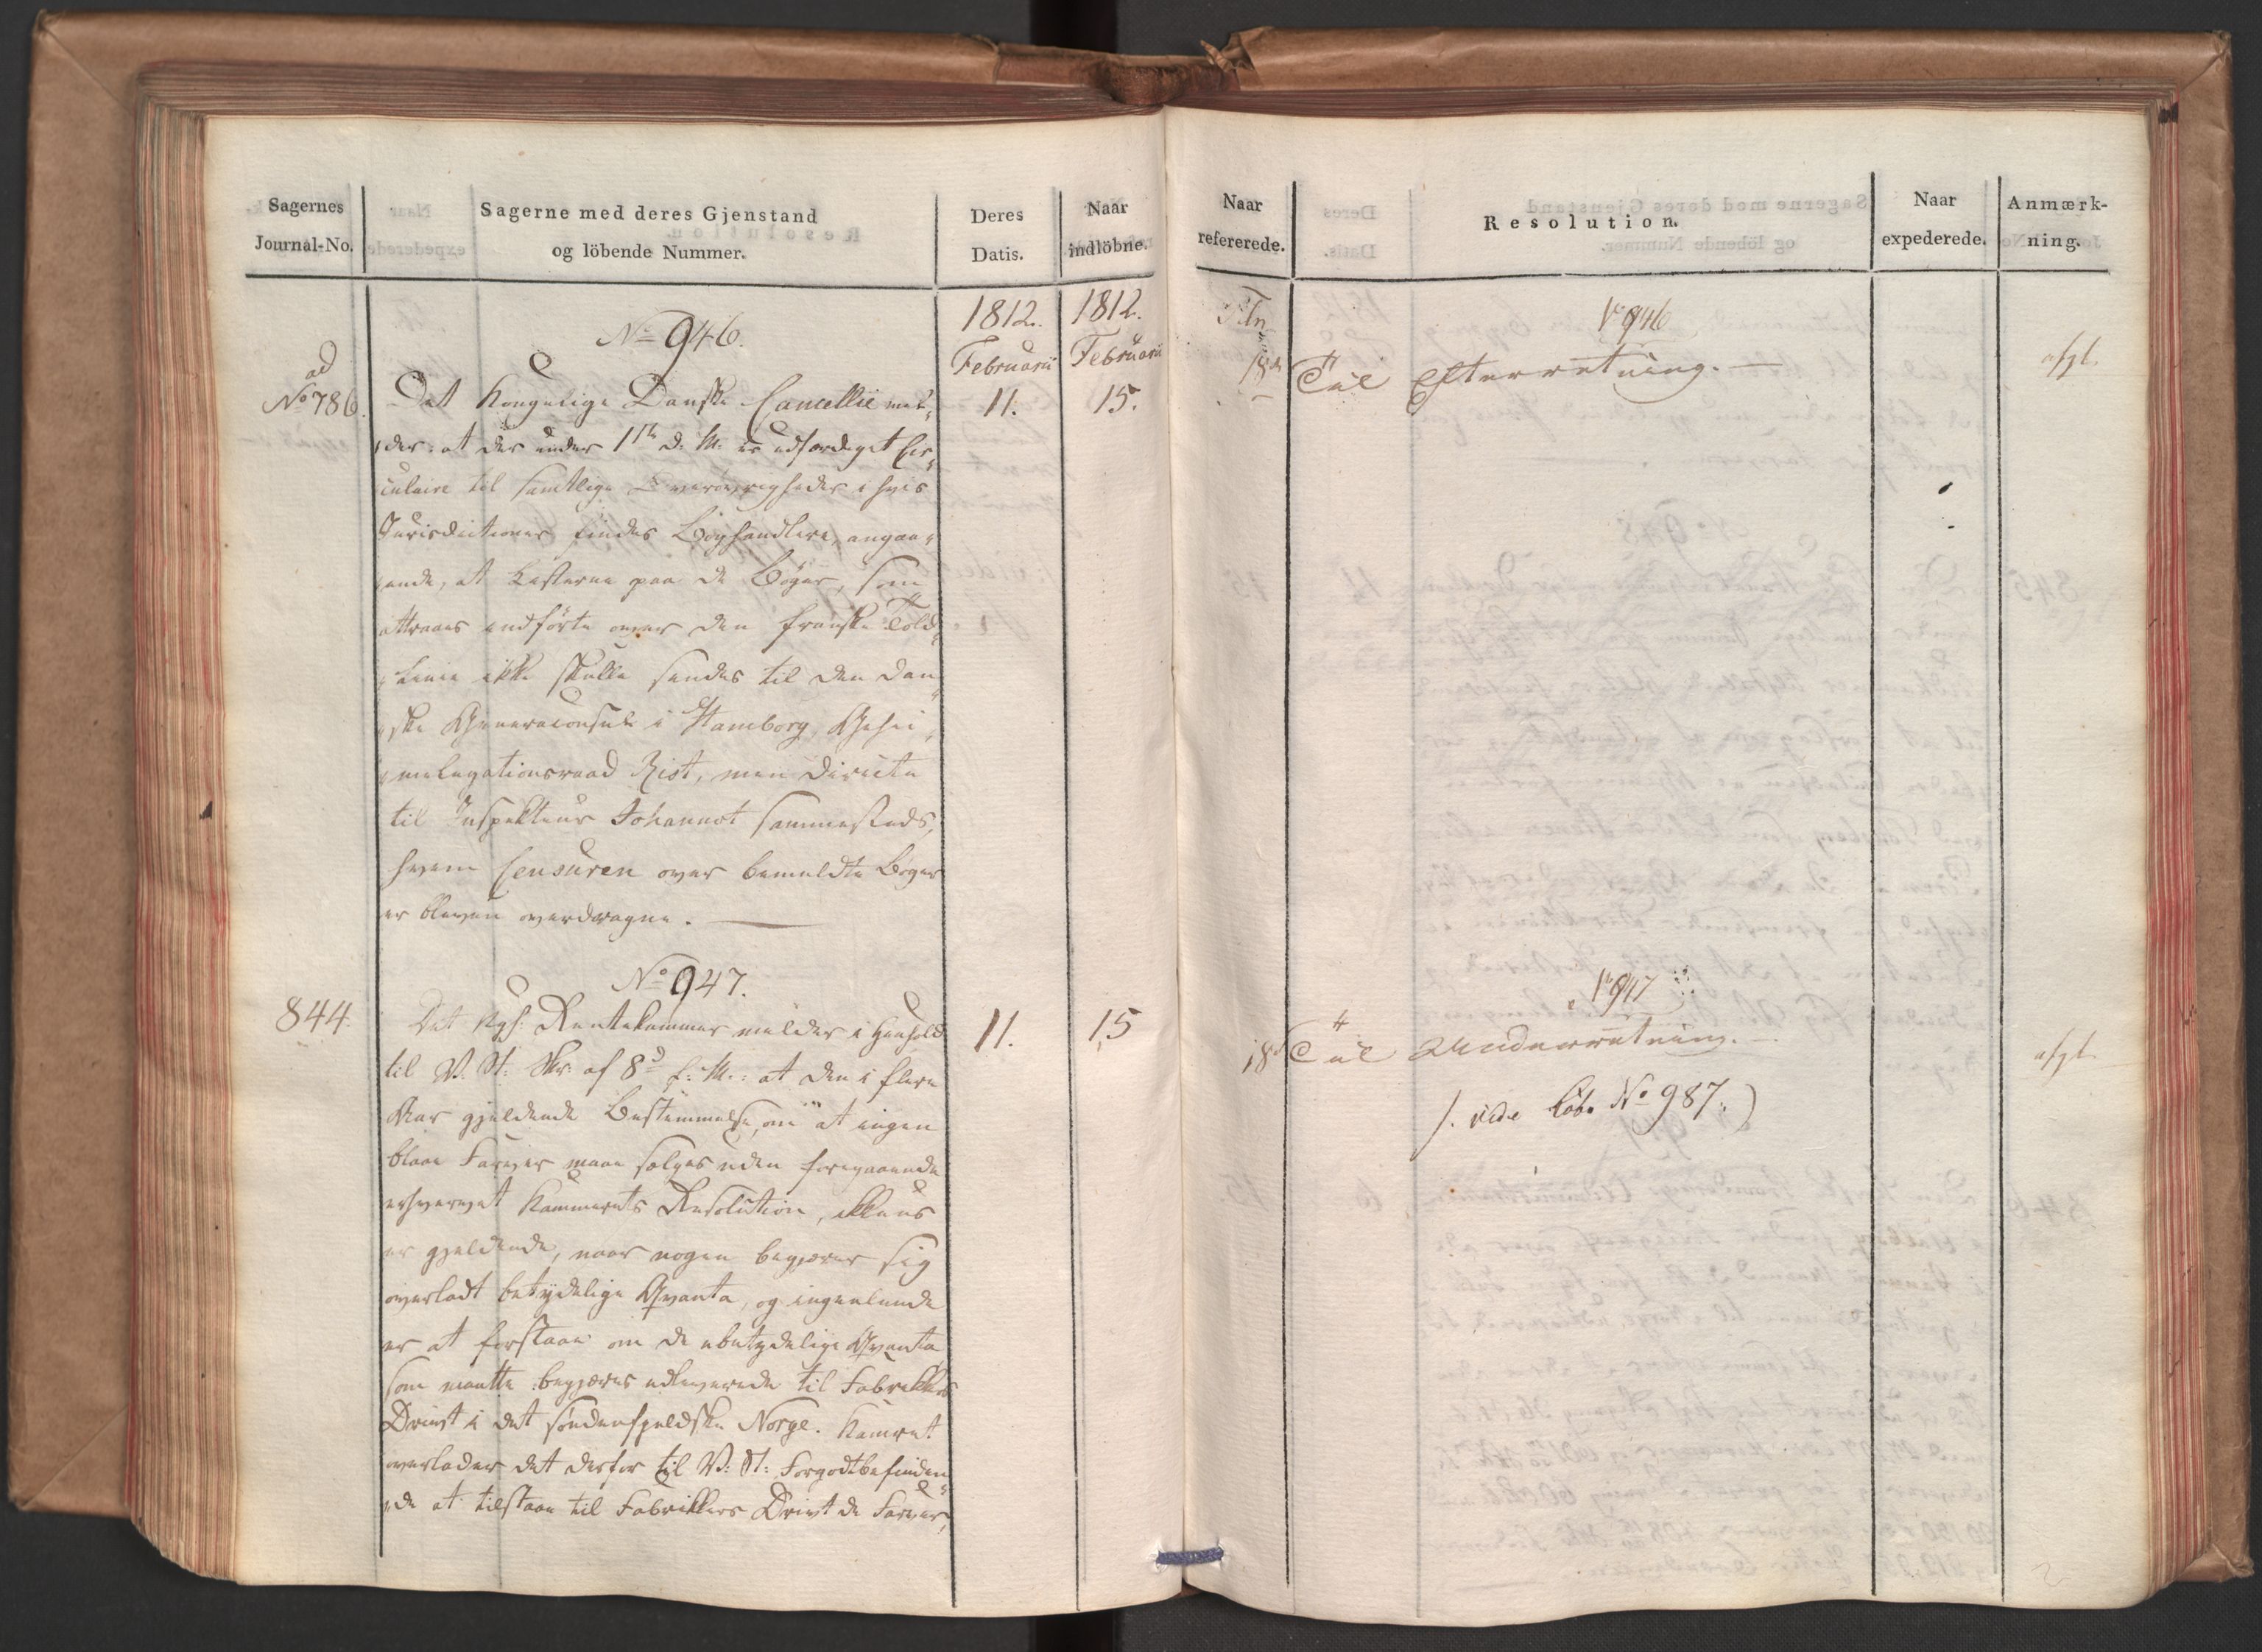 Sagernes
Journal-No.
Sagerne med deres Gjenstand
og löbende Nummer.
Deres
Datis.
Naar
indlöbne.
1812.
1812.
Februarii
Februarii
No 946.
ad
No 786.
11.
15.
Det Kongelige Danske Cancellie mel-
der: at der under 11te d. M. er udfærdiget Cir-
culaire til samtlige Överövrigheder i hvis
Jurisdictioner findes Boghandlere, angaa-
ende, at Listerne paa de Bøger, som
attraaes indførte over den franske Told-
Linie ikke skulle sendes til den Dan-
ske Generalconsul i Hamborg, Gehei-
melegationsraad Rist, men directe
til Inspekteur Johannot sammesteds,
hvem Censuren over bemeldte Bøger
er bleven overdragne.
No 947.
844.
11.
15
Det Kgl: Rentekammer melder i Henhold
til V. St: Skr: af 8de f: M.: at den i flere
Aar gjeldende Bestemmelse, om at ingen
blaae Farver maae sælges uden foregaaende
erhvervet Kammerets Resolution, alleene
er gjeldende, naar nogen begjærer sig
overladt betydelige Qvanta, og ingenlunde
er at forstaae om de ubetydelige Qvanta
som maatte begjæres udleverede til Fabrikkers
Drivt i det søndenfjeldske Norge. Kamret
overlader det derfor til V: St: Forgodtbefinden-
de at tilstaae til Fabrikkers Drivt de Farver,
Naar
refererede.
Resolution.
Naar
expederede.
Anmærk-
ning.
No 946
18de
Til Efterretning.
afgl.
No 947
18d
Til Underretning.
afgl.
/: vide Löb. No 987. :)